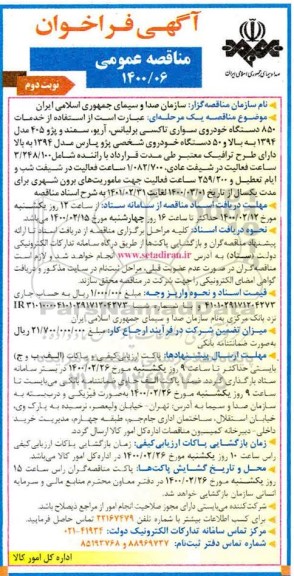 آگهی فراخوان
مناقصه عمومی
۱۴۰۰/۰۶
صدا و سیمای جمهوری اسلامی ایران
نوبت دوم
نام سازمان مناقصه‌گزار: سازمان صدا و سیمای جمهوری اسلامی ایران
موضوع مناقصه یک مرحله‌ای: عبارت است از استفاده از خدمات
۸۵۰ دستگاه خودروی سواری تاکسی برلیانس، آریو، سمند و پژو ۴۰۵ مدل
۱۳۹۴ به بالا و ۵۰ دستگاه خودروی شخصی پژو پارس مدل ۱۳۹۴ به بالا
دارای طرح ترافیک معتبر طی مدت قرارداد با راننده شامل ۳/۲۴۸/۱۰۰
ساعت فعالیت در شیفت عادی، ۱/۰۸۲/۷۰۰ ساعت فعالیت در شیفت شب و
ایام تعطیل و ۲۵۹/۲۰۰ ساعت فعالیت جهت ماموریت‌های برون شهری برای
مدت یکسال از تاریخ ۱۴۰۰/۰۳/۰۱ لغایت ۱۴۰۱/۰۲/۳۱ به شرح اسناد مناقصه
مهلت دریافت اسناد مناقصه از سامانه ستاد: از ساعت ۱۲ روز یکشنبه
مورخ ۱۴۰۰/۰۲/۱۲ لغایت ساعت ۱۶ روز چهارشنبه مورخ ۱۴۰۰/۰۲/۱۵ می‌باشد
نحوه دریافت اسناد: کلیه مراحل برگزاری مناقصه از دریافت اسناد تا ارائه
پیشنهاد مناقصه‌گران و بازگشایی پاکت‌ها از طریق درگاه سامانه تدارکات الکترونیکی
دولت (ستاد) به آدرس www.setadiran.ir انجام خواهد شد و لازم است
مناقصه‌گران در صورت عدم عضویت قبلی، مراحل ثبت‌نام در سایت مذکور و دریافت
گواهی امضای الکترونیکی را جهت شرکت در مناقصه محقق سازند
قیمت اسناد و نحوه واریز وجه: مبلغ ۱/۰۰۰/۰۰۰ ریال به حساب جاری
نزد بانک مرکزی بنام سازمان صدا و سیمای جمهوری اسلامی ایران
میزان تضمین شرکت در فرآیند ارجاع کار: مبلغ ۲۱/۷۰۰/۰۰۰/۰۰۰ ریال
به‌صورت ضمانتنامه بانکی
مهلت ارسال پیشنهادها: پاکت ارزیابی کیفی و پاکات (الف، ب و ج)
بایستی حداکثر تا ساعت ۹ روز یکشنبه مورخ ۱۴۰۰/۰۲/۲۶ در بستر سامانه
ساعت ۹ روز یکشنبه مورخ ۱۴۰۰/۰۲/۲۶ به‌صورت فیزیکی و دربسته به
سازمان صدا و سیما به آدرس: تهران، خیابان ولیعصر، نرسیده به پارک وی،
خیابان استقلال، ساختمان اداری جام‌جم، طبقه چهارم، مدیریت خرید
داخلی، دبیرخانه کمیسیون مناقصات اداره‌کل امور کالا ارسال گردد.
زمان بازگشایی پاکات ارزیابی‌کیفی: زمان بازگشایی پاکات ارزیابی کیفی
راس ساعت ۱۰ روز یکشنبه مورخ ۱۴۰۰/۰۲/۲۶ در اداره‌کل امور کالا می‌باشد
محل و تاریخ گشایش پاکت‌ها: پاکت مناقصه‌گران راس ساعت ۱۵
روز یکشنبه مورخ ۱۴۰۰/۰۲/۲۶ در دفتر معاون محترم منابع مالی و سرمایه
انسانی سازمان بازگشایی خواهد شد.
شرکت‌کننده می‌بایستی دارای مجوز صلاحیت انجام امور از مراجع ذیصلاح باشد.
برای کسب اطلاعات بیشتر با شماره تلفن ۲۲۱۶۷۴۷۹ تماس حاصل فرمایید.
مرکز تماس سامانه تدارکات الکترونیک دولت: ۴۱۹۳۴-۰۲۱
شماره تماس دفتر ثبت‌نام: ۸۸۹۶۹۷۳۷ و ۸۵۱۹۳۷۶۸
اداره کل امور کالا